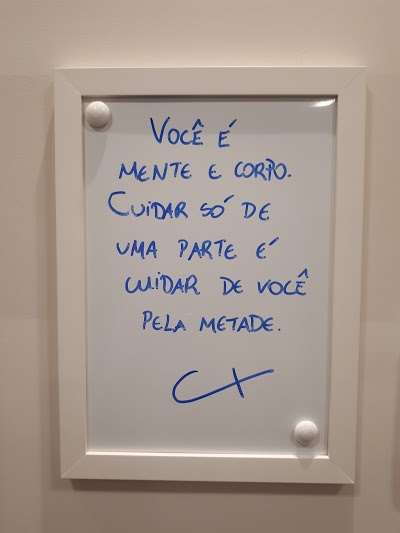 VOCÊ É
MENTE E CORPO.
CUIDAR SÓ DE
UMA PARTE É
CUIDAR DE VOCÊ
PELA METADE.